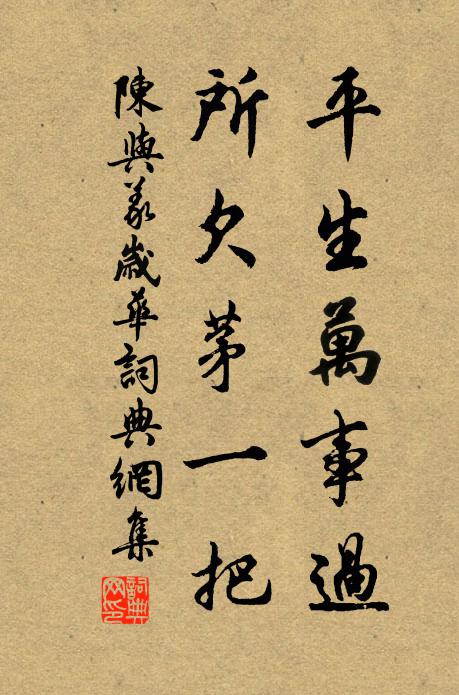 平生萬事過
所欠茅一把
陳與義歲華詞典網集
詞典网印